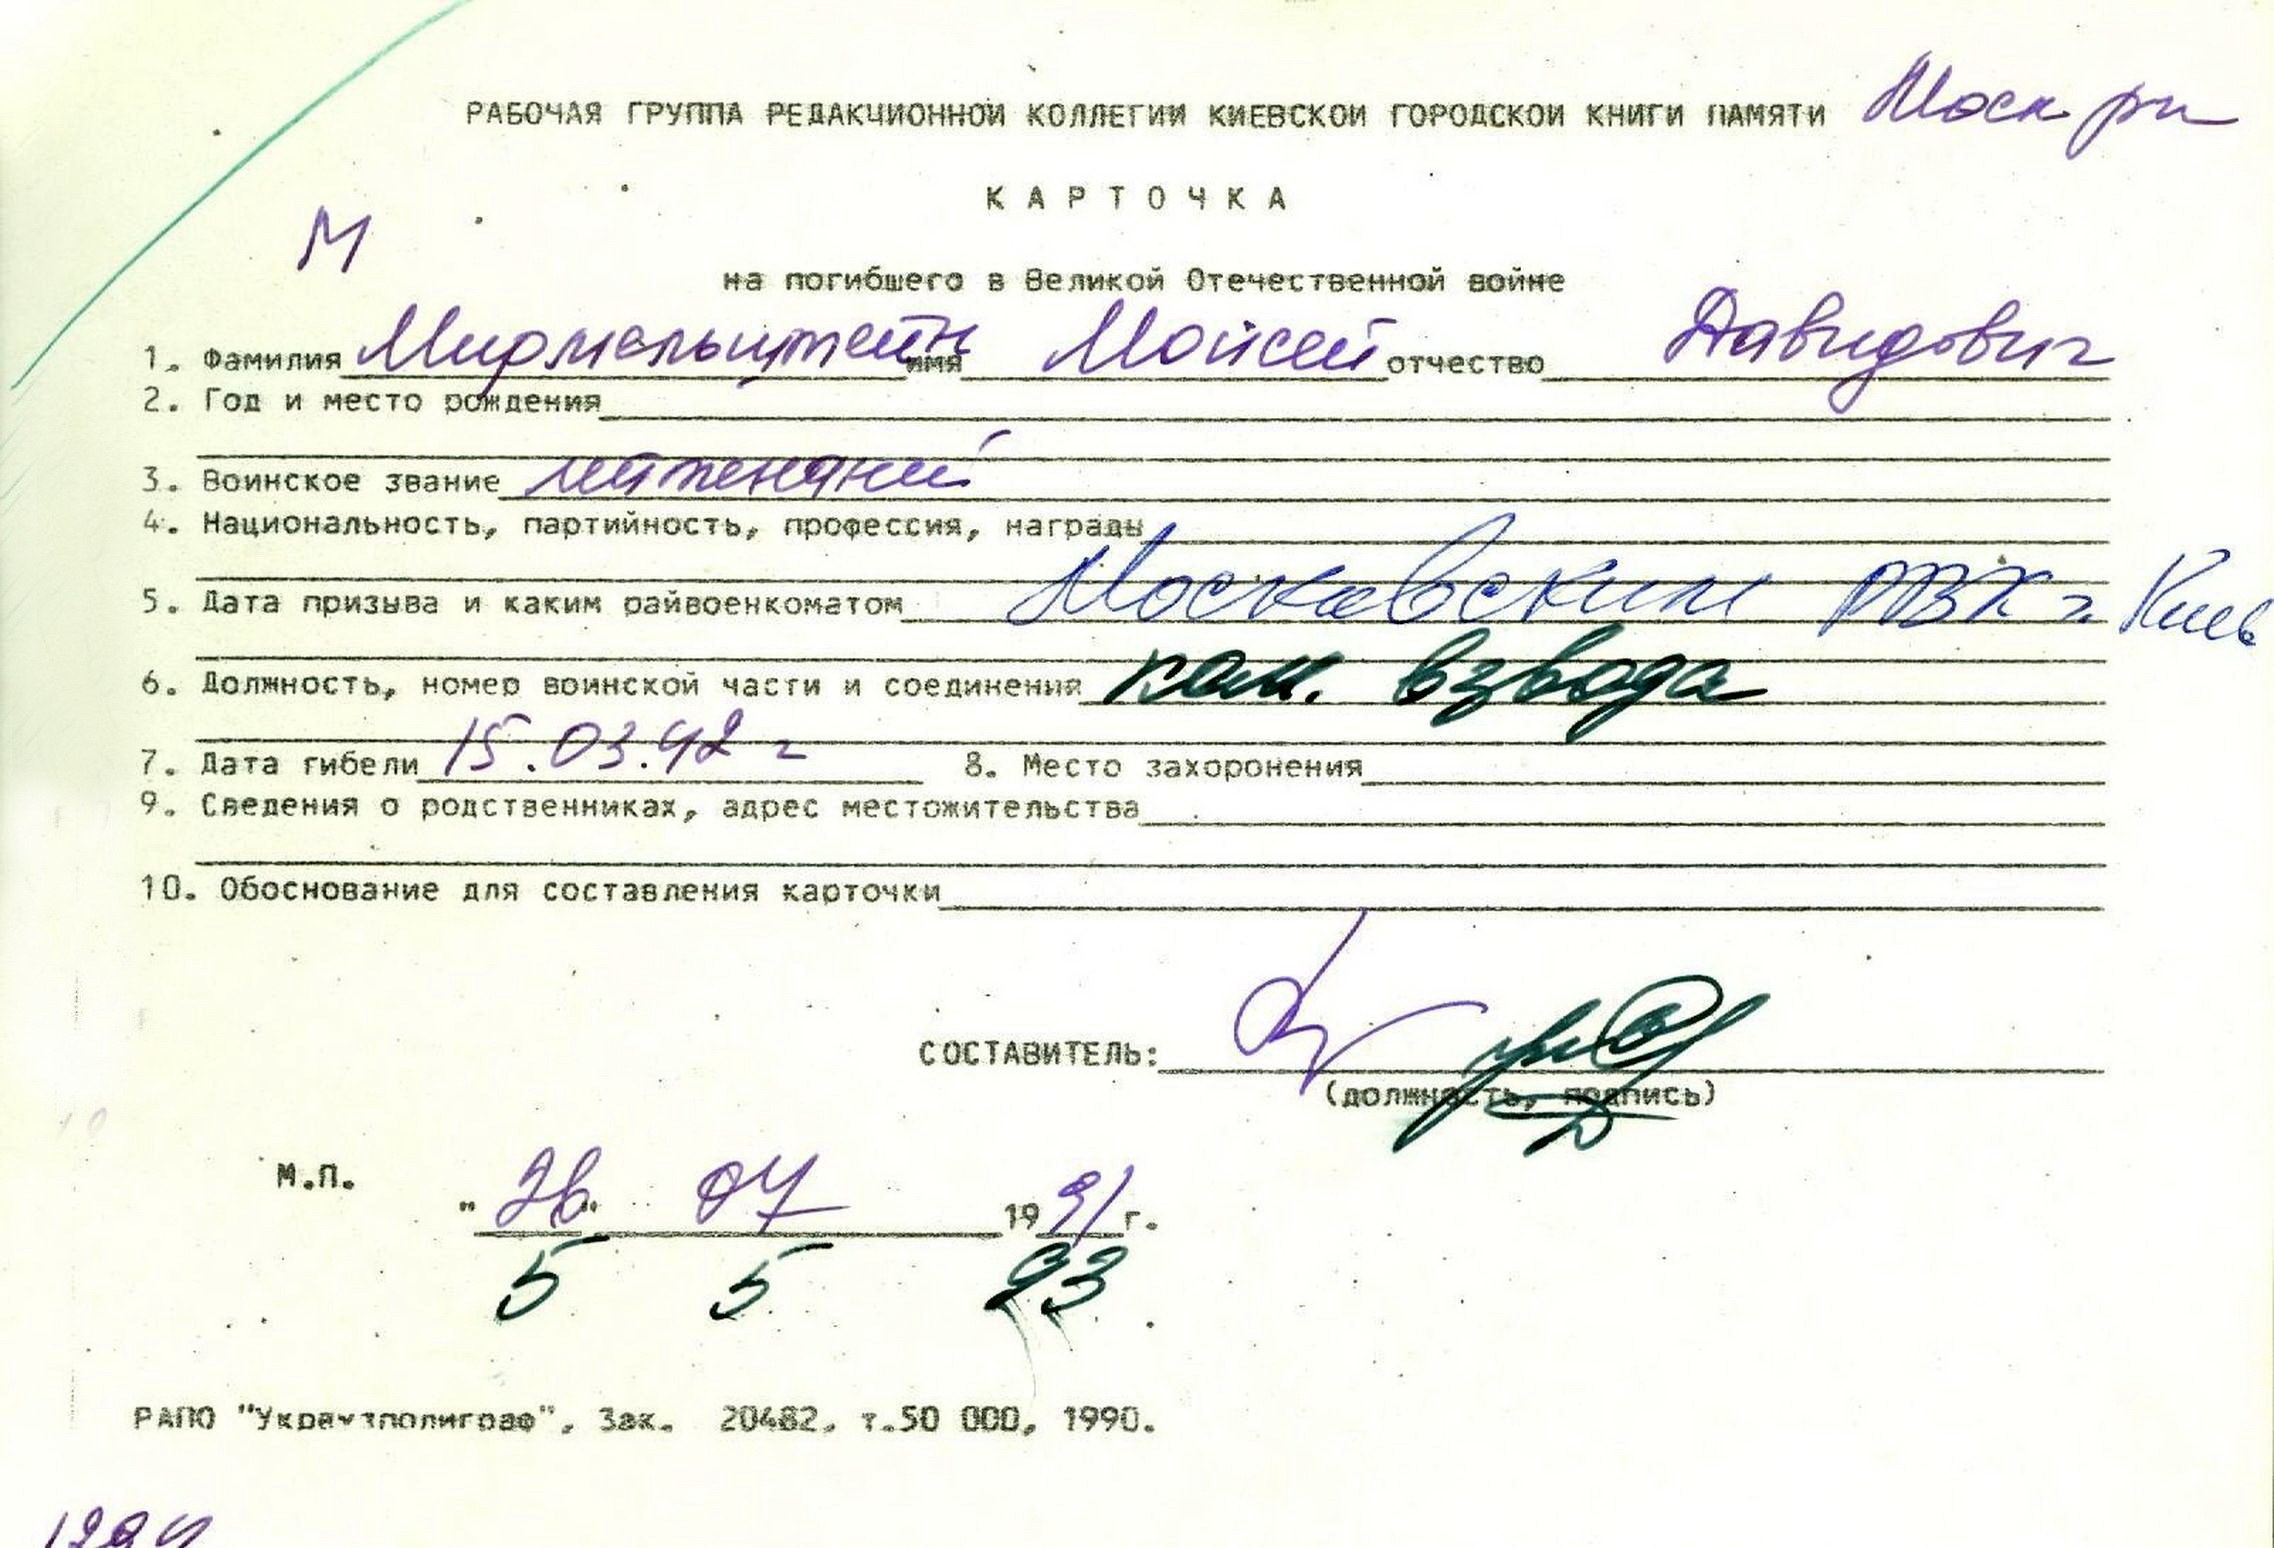 РАБОЧАЯ ГРУППА РЕДАКЦИОННОЙ КОЛЛЕГИИ КИЕВСКОЙ ГОРОДСКОЙ КНИГИ ПАМЯТИ Моск рн
КАРТОЧКА
М
на погибшего в Великой Отечественной войне
1. Фамилия Мирмельштейн имя Мойсей отчество Давидович
2. Год и место рождения
3. Воинское звание лейтенант
4. Национальность, партийность, профессия, награды
5. Дата призыва и каким райвоенкоматом Московским РВК г. Киев
6. Должность, номер воинской части и соединения ком. взвода
7. Дата гибели 15.03.42 г 8. Место захоронения
9. Сведения о родственниках, адрес местожительства
10. Обоснование для составления карточки
СОСТАВИТЕЛЬ:
(должность, подпись)
М.П.
"26" 07 1991 г.
5 5 93
РАПО "Укрвузполиграф", Зак. 20482, т.50 000, 1990.